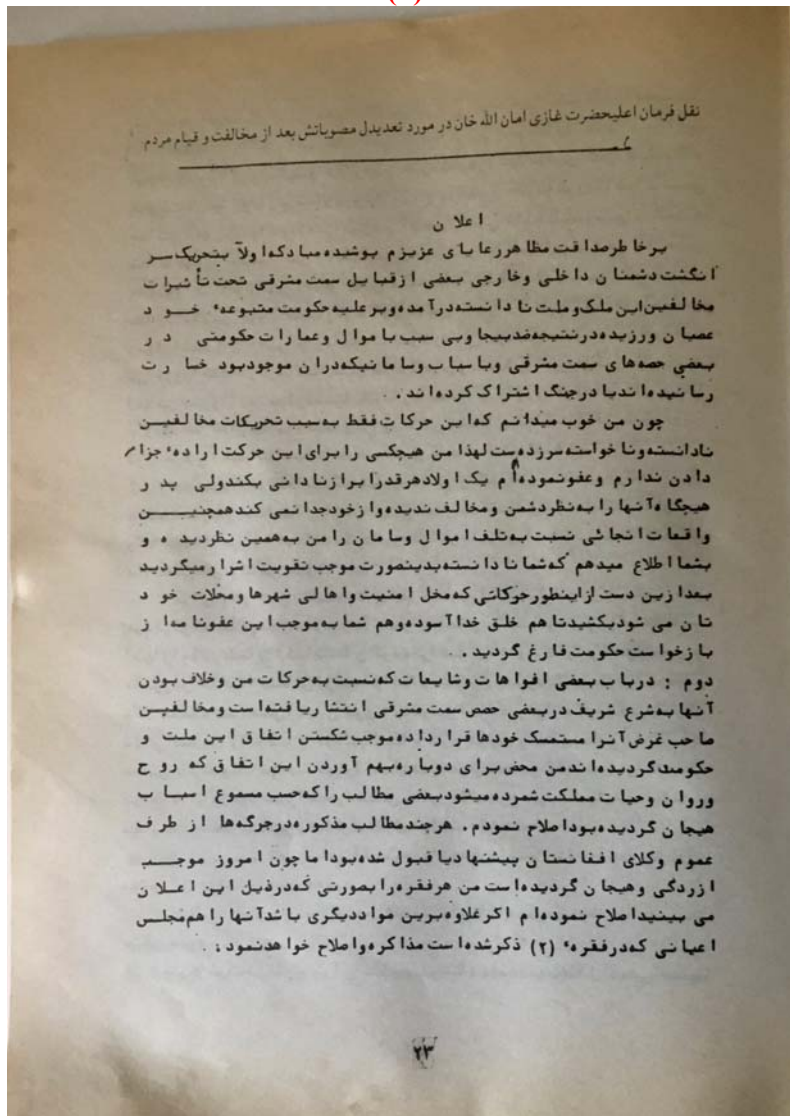 نقل فرمان اعلیحضرت غازی امان الله خان در مورد تعدیدل مصوباتش بعد از مخالفت و قیام مردم
اعلان
برخاطرصداقت مظاهررعایای عزیزم پوشیده مبادکه اولاً بتحریک سر
انگشت دشمنان داخلی وخارجی بعضی ازقبایل سمت مشرقی تحت تأثیرات
مخالفین این ملک وملت نادانسته درآمده وبرعلیه حکومت متبوعهٔ خود
عصیان ورزیده درنتیجه ضدیبجا وبی سبب باموال وعمارات حکومتی در
بعضی حصه های سمت مشرقی وباسباب وسامانیکه دران موجودبود خسارت
رسانیده اند یا درجنگ اشتراک کرده اند .
چون من خوب میدانم که این حرکات فقط به سبب تحریکات مخالفین
نادانسته وناخواسته سرزده ست لهذا من هیچکسی را برای این حرکت ارادهٔ جزا
دادن ندارم وعفونموده ام یک اولادهرقدرابرازنادانی بکندولی پدر
هیچگاه آنها را به نظردشمن ومخالف ندیده وازخودجدانمی کندهمچنین
واقعات انجائی نسبت به تلف اموال وسامان رامن به همین نظردیده و
بشما اطلاع میدهم که شما نادانسته بدینصورت موجب تقویت اشرارمیگردید
بعدازین دست ازاینطورحرکاتی که مخل امنیت واهالی شهرها ومحلات خود
تان می شودبکشیدتاهم خلق خداآسوده وهم شما به موجب این عفونامه از
بازخواست حکومت فارغ گردید .
دوم : درباب بعضی افواهات وشایعات که نسبت به حرکات من وخلاف بودن
آنها به شرع شریف دربعضی حصص سمت مشرقی انتشاریافته است ومخالفین
صاحب غرض آنرا مستمسک خودها قرارداده موجب شکستن اتفاق این ملت و
حکومت گردیده اندمن محض برای دوباره بهم آوردن این اتفاق که روح
وروان وحیات مملکت شمرده میشودبعضی مطالب راکه حسب مسموع اسباب
هیجان گردیده بوداصلاح نمودم . هرچندمطالب مذکوره درجرگه ها از طرف
عموم وکلای افغانستان پیشنهاد یا قبول شده بوداما چون امروز موجب
ازردگی وهیجان گردیده است من هرفقره را بصورتی که درذیل این اعلان
می بینیداصلاح نموده ام اگرعلاوه برین مواددیگری باشدآنها راهم مجلس
اعیانی که درفقرهٔ (۲) ذکرشده است مذاکره واصلاح خواهدنمود :
۲۳